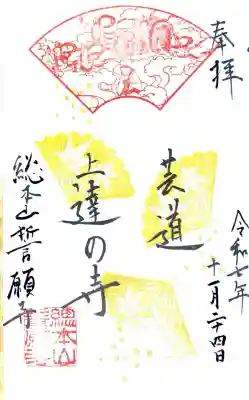 奉拝
令和七年
十一月二十四日
芸道
上達の寺
総本山誓願寺
總本山